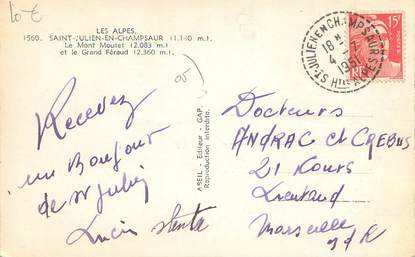 10 €
LES ALPES
1560. SAINT-JULIEN-EN-CHAMPSAUR (1.140 m.).
Le Mont Moutet (2.083 m.)
et le Grand Féraud (2.360 m.)
Recevez
un Bonjour
de St Julien
Lucie
ABEIL - Editeur - GAP.
Reproduction interdite.
ST-JULIEN EN CHAMPSAUR
18 H
4 - 7
1951
Htes ALPES
15F
RF
Docteurs
ANDRAC et CREBUS
21 Cours
Lieutaud
Marseille